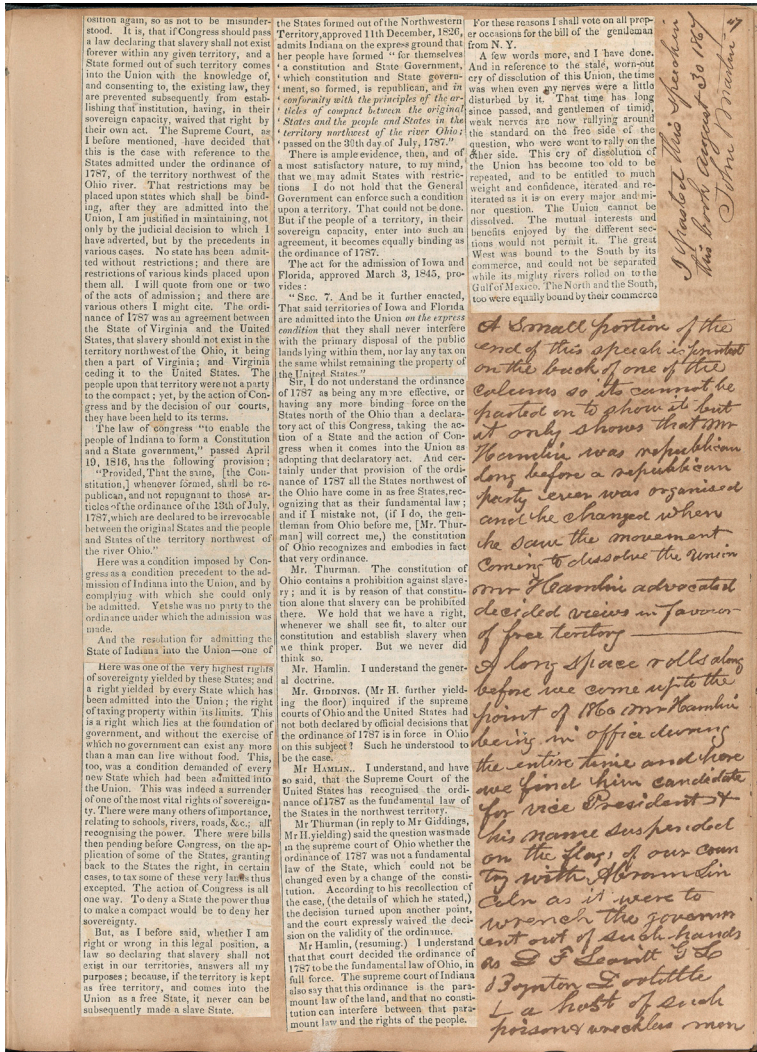 osition again, so as not to be misunder-
stood. It is, that if Congress should pass
a law declaring that slavery shall not exist
forever within any given territory, and a
State formed out of such territory comes
into the Union with the knowledge of,
and consenting to, the existing law, they
are prevented subsequently from estab-
lishing that institution, having, in their
sovereign capacity, waived that right by
their own act. The Supreme Court, as
I before mentioned, have decided that
this is the case with reference to the
States admitted under the ordinance of
1787, of the territory northwest of the
Ohio river. That restrictions may be
placed upon states which shall be bind-
ing, after they are admitted into the
Union, I am justified in maintaining, not
only by the judicial decision to which I
have adverted, but by the precedents in
various cases. No state has been admit-
ted without restrictions; and there are
restrictions of various kinds placed upon
them all. I will quote from one or two
of the acts of admission; and there are
various others I might cite. The ordi-
nance of 1787 was an agreement between
the State of Virginia and the United
States, that slavery should not exist in the
territory northwest of the Ohio, it being
then a part of Virginia; and Virginia
ceding it to the United States. The
people upon that territory were not a party
to the compact; yet, by the action of Con-
gress and by the decision of our courts,
they have been held to its terms.
The law of congress "to enable the
people of Indiana to form a Constitution
and a State government," passed April
19, 1816, has the following provision;
"Provided, That the same, [the Con-
stitution,] whenever formed, shall be re-
publican, and not repugnant to those ar-
ticles of the ordinance of the 13th of July,
1787, which are declared to be irrevocable
between the original States and the people
and States of the territory northwest of
the river Ohio."
Here was a condition imposed by Con-
gress as a condition precedent to the ad-
mission of Indiana into the Union, and by
complying with which she could only
be admitted. Yet she was no party to the
ordinance under which the admission was
made.
And the resolution for admitting the
State of Indiana into the Union—one of
Here was one of the very highest rights
of sovereignty yielded by these States; and
a right yielded by every State which has
been admitted into the Union; the right
of taxing property within its limits. This
is a right which lies at the foundation of
government, and without the exercise of
which no government can exist any more
than a man can live without food. This,
too, was a condition demanded of every
new State which had been admitted into
the Union. This was indeed a surrender
of one of the most vital rights of sovereign-
ty. There were many others of importance,
relating to schools, rivers, roads, &c.; all
recognising the power. There were bills
then pending before Congress, on the ap-
plication of some of the States, granting
back to the States the right, in certain
cases, to tax some of these very lands thus
excepted. The action of Congress is all
one way. To deny a State the power thus
to make a compact would be to deny her
sovereignty.
But, as I before said, whether I am
right or wrong in this legal position, a
law so declaring that slavery shall not
exist in our territories, answers all my
purposes; because, if the territory is kept
as free territory, and comes into the
Union as a free State, it never can be
subsequently made a slave State.
the States formed out of the Northwestern
Territory, approved 11th December, 1826,
admits Indiana on the express ground that
her people have formed "for themselves
'a constitution and State Government,
'which constitution and State govern-
'ment, so formed, is republican, and in
'conformity with the principles of the ar-
'ticles of compact between the original
'States and the people and States in the
'territory northwest of the river Ohio;
'passed on the 30th day of July, 1787."
There is ample evidence, then, and of
a most satisfactory nature, to my mind,
that we may admit States with restric-
tions. I do not hold that the General
Government can enforce such a condition
upon a territory. That could not be done.
But if the people of a territory, in their
sovereign capacity, enter into such an
agreement, it becomes equally binding as
the ordinance of 1787.
The act for the admission of Iowa and
Florida, approved March 3, 1845, pro-
vides:
"SEC. 7. And be it further enacted,
That said territories of Iowa and Florida
are admitted into the Union on the express
condition that they shall never interfere
with the primary disposal of the public
lands lying within them, nor lay any tax on
the same whilst remaining the property of
the United States."
Sir, I do not understand the ordinance
of 1787 as being any more effective, or
having any more binding force on the
States north of the Ohio than a declara-
tory act of this Congress, taking the ac-
tion of a State and the action of Con-
gress when it comes into the Union as
adopting that declaratory act. And cer-
tainly under that provision of the ordi-
nance of 1787 all the States northwest of
the Ohio have come in as free States, rec-
ognizing that as their fundamental law;
and if I mistake not, (if I do, the gen-
tleman from Ohio before me, [Mr. Thur-
man] will correct me,) the constitution
of Ohio recognizes and embodies in fact
that very ordinance.
Mr. Thurman. The constitution of
Ohio contains a prohibition against slave-
ry; and it is by reason of that constitu-
tion alone that slavery can be prohibited
there. We hold that we have a right,
whenever we shall see fit, to alter our
constitution and establish slavery when
we think proper. But we never did
think so.
Mr. Hamlin. I understand the gener-
al doctrine.
Mr. GIDDINGS. (Mr H. further yield-
ing the floor) inquired if the supreme
courts of Ohio and the United States had
not both declared by official decisions that
the ordinance of 1787 is in force in Ohio
on this subject? Such he understood to
be the case.
Mr HAMLIN. I understand, and have
so said, that the Supreme Court of the
United States has recognised the ordi-
nance of 1787 as the fundamental law of
the States in the northwest territory.
Mr Thurman (in reply to Mr Giddings,
Mr H. yielding) said the question was made
in the supreme court of Ohio whether the
ordinance of 1787 was not a fundamental
law of the State, which could not be
changed even by a change of the consti-
tution. According to his recollection of
the case, (the details of which he stated,)
the decision turned upon another point,
and the court expressly waived the deci-
sion on the validity of the ordinance.
Mr Hamlin, (resuming.) I understand
that that court decided the ordinance of
1787 to be the fundamental law of Ohio, in
full force. The supreme court of Indiana
also say that this ordinance is the para-
mount law of the land, and that no consti-
tution can interfere between that para-
mount law and the rights of the people.
For these reasons I shall vote on all prop-
er occasions for the bill of the gentleman
from N. Y.
A few words more, and I have done.
And in reference to the stale, worn-out
cry of dissolution of this Union, the time
was when even my nerves were a little
disturbed by it. That time has long
since passed, and gentlemen of timid,
weak nerves are now rallying around
the standard on the free side of the
question, who were wont to rally on the
other side. This cry of dissolution of
the Union has become too old to be
repeated, and to be entitled to much
weight and confidence, iterated and re-
iterated as it is on every major and mi-
nor question. The Union cannot be
dissolved. The mutual interests and
benefits enjoyed by the different sec-
tions would not permit it. The great
West was bound to the South by its
commerce, and could not be separated
while its mighty rivers rolled on to the
Gulf of Mexico. The North and the South,
too were equally bound by their commerce
47
I pasted this speech in
this book august 30 1867
John Martin
A Small portion of the
end of this speech is printed
on the back of one of the
colums so its cannot be
pasted on to show it but
it only shows that Mr
Hamlin was republican
long before a republican
party ever was organised
and he changed when
he saw the movement
coming to dissolve the union
Mr Hamlin advocated
decided views in favour
of free teritory
A long space rolls along
before we come up to the
point of 1860 Mr Hamlin
being in office during
the entire time and here
we find him candidate
for vice President &
his name suspended
on the flags of our coun
try with Abram Lin
coln as it were to
wrench the governm
ent out of such hands
as D F Leavitt G L
Boynton Doolittle
& a host of such
poison & wreckless men